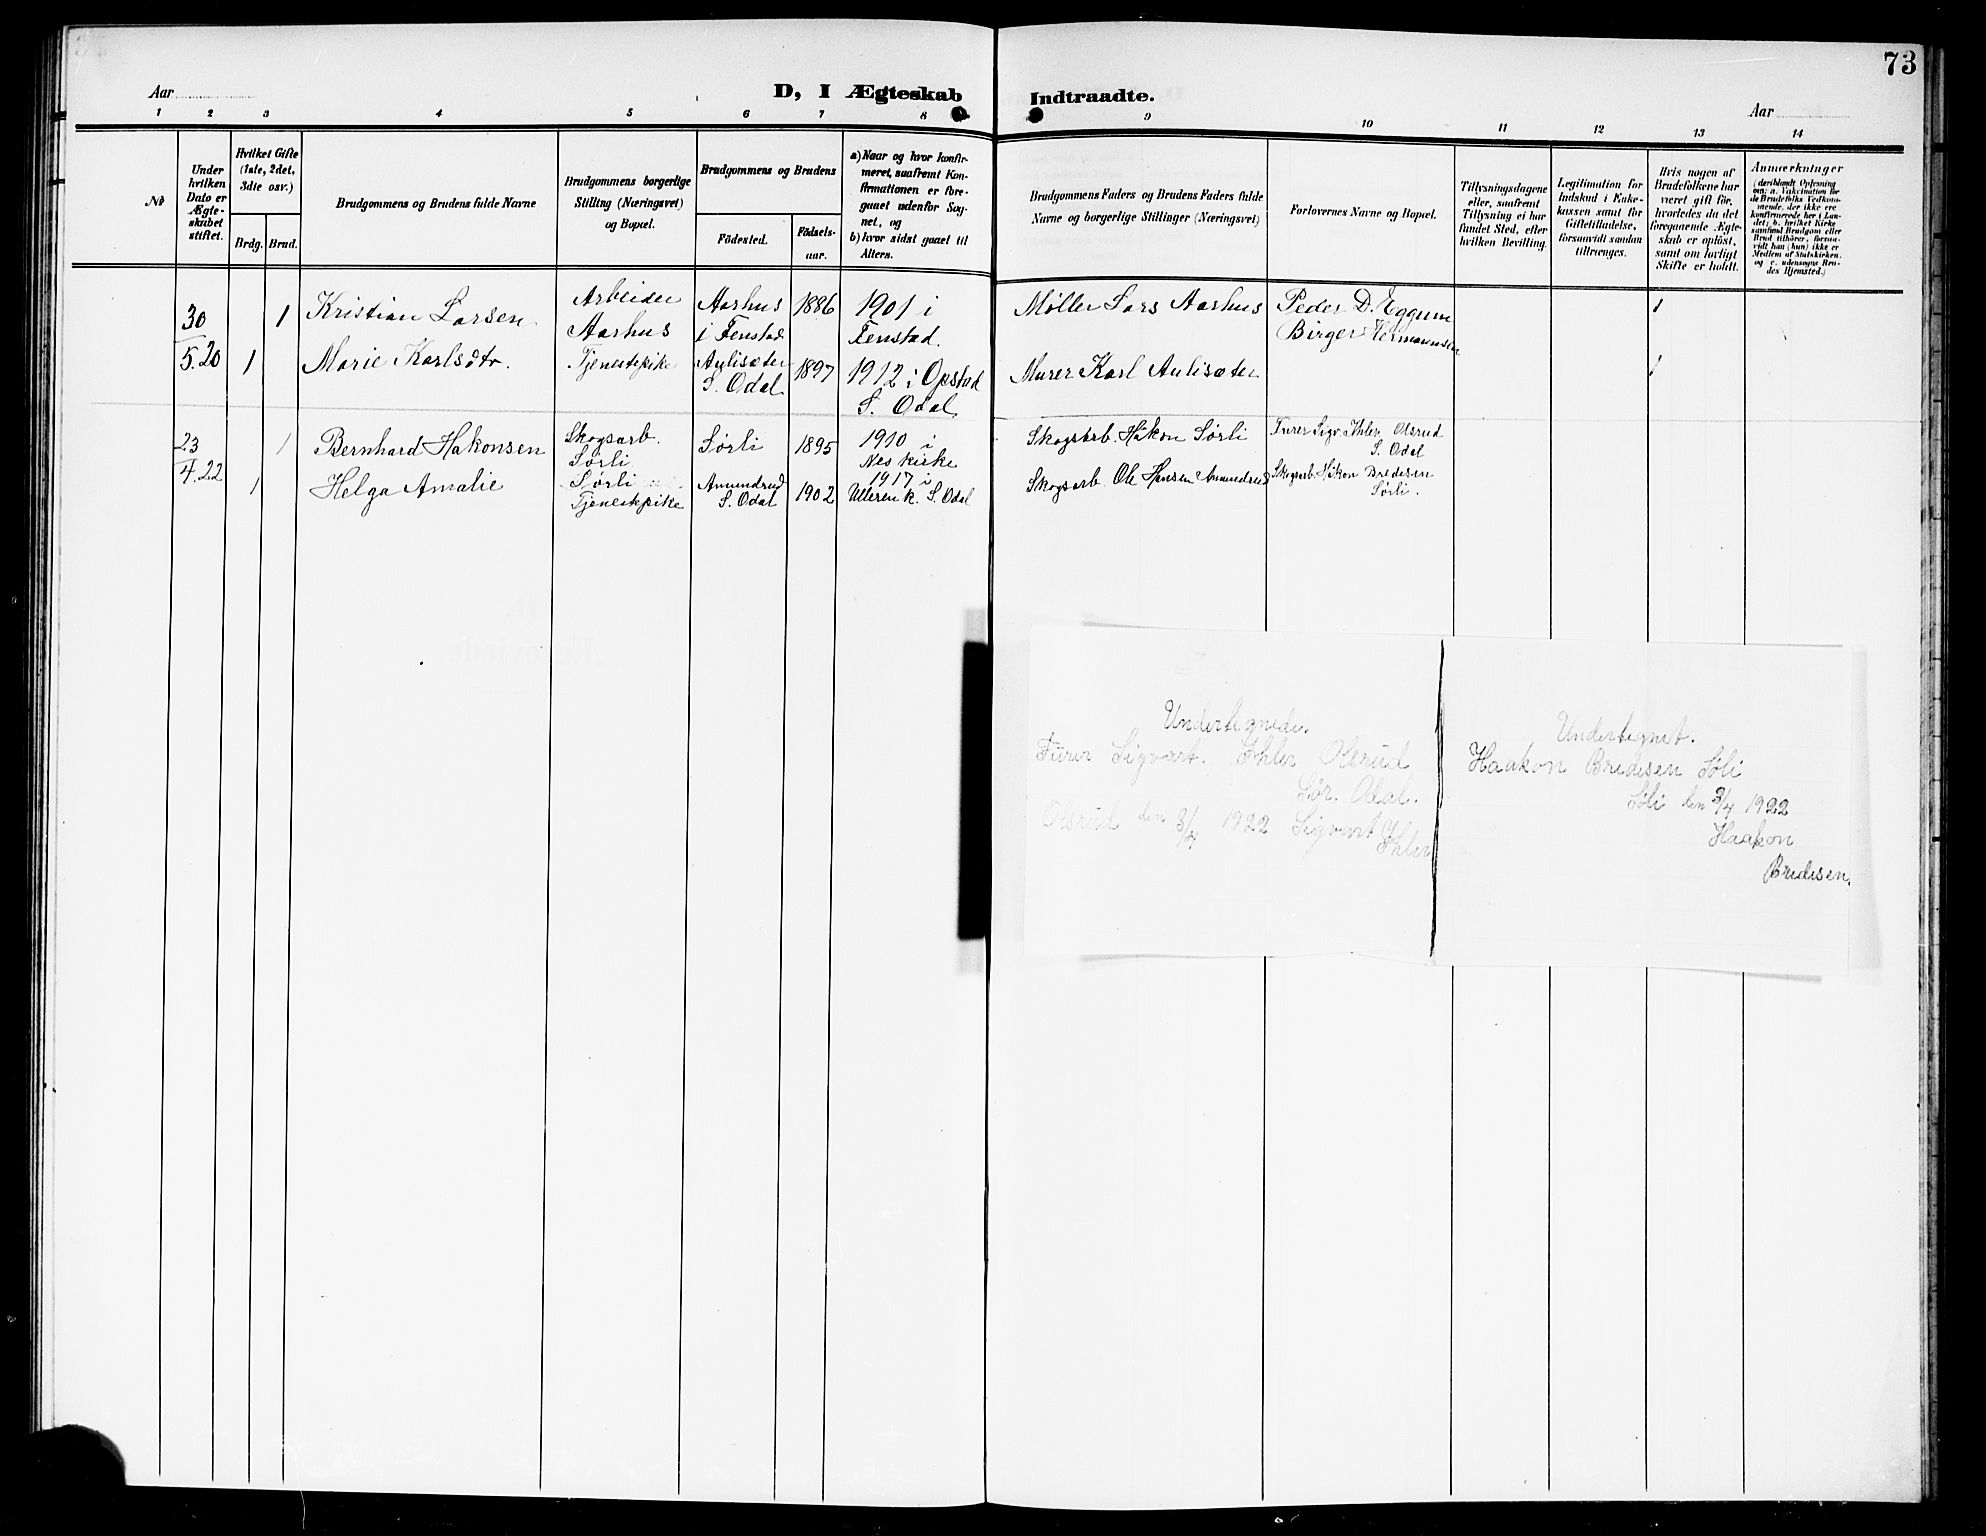 73
Aar
D, I Ægteskab Indtraadte.
Aar
1 2 3 4 5 6 7 8 9 10 11 12 13 14
No
Under
hvilken
Dato er
Ægte-
skabet
stiftet.
Hvilket Gifte
(1ste, 2det,
3die osv.)
Brdg. Brud.
Brudgommens og Brudens fulde Navne
Brudgommens borgerlige
Stilling (Næringsvei)
og Bopæl.
Brudgommens og Brudens
Födested.
Födsels-
aar.
a) Naar og hvor konfir-
meret, saafremt Kon-
firmationen er fore-
gaaet udenfor Sog-
net, og
b) hvor sidst gaaet til
Alters.
Brudgommens Faders og Brudens Faders fulde
Navne og borgerlige Stillinger (Næringsvei)
Forlovernes Navne og Bopæl.
Tillysningsdagene
eller, saafremt
Tillysning ei har
fundet Sted, efter
hvilken Bevilling.
Legitimation for
Indskud i Enke-
kassen samt for
Giftetilladelse,
forsaavidt saadan
tiltrænges.
Hvis nogen af
Brudefolkene har
været gift för,
hvorledes da det
foregaaende Ægte-
skab er oplöst,
samt om lovligt
Skifte er holdt.
Anmærkninger
(deriblandt Oplysning
om: a. Vakcination for
de Brudefolks Vedkom-
mende, der ikke ere
konfirmerede her i Lan-
det; b. hvilket Kirke-
samfund Brudgom eller
Brud tilhörer, forsaa-
vidt han (hun) ikke er
Medlem af Statskirken,
og c. udensogns Bru-
des Hjemsted.)
30
5.20
1
Kristian Larsen
Arbeider
Aarhus
Aarhus
i Fenstad
1886
1901 i
Fenstad.
Møller Lars Aarhus
Peder D. Eggum
Birger Hermannsen
1
1
Marie Karlsdtr.
Tjenestepike
Aulisæter
S. Odal
1897
1912 i Opstad
S. Odal
Murer Karl Aulisæter
1
23
4.22
1
Bernhard Hakonsen
Skogsarb.
Sørli
Sørli
1895
1910 i
Nes kirke
Skogsarb. Håkon Sørli
Furer Sigv. Ihler Olsrud
S. Odal
1
Helga Amalie
Sørli
Tjenestpike
Amundrud
S. Odal
1902
1917 i
Ulleren k. S. Odal
Skogsarb. Ole Hansen Amundrud
Skogsarb. Håkon Bredesen
Sørli.
Undertegnede.
Furer Sigvart. Ihler Olsrud
Sør. Odal.
Olsrud den 3/4 1922 Sigvart
Ihler
Undertegnet.
Haakon Bredesen Søli
Søli den 3/4 1922
Haakon
Bredesen.